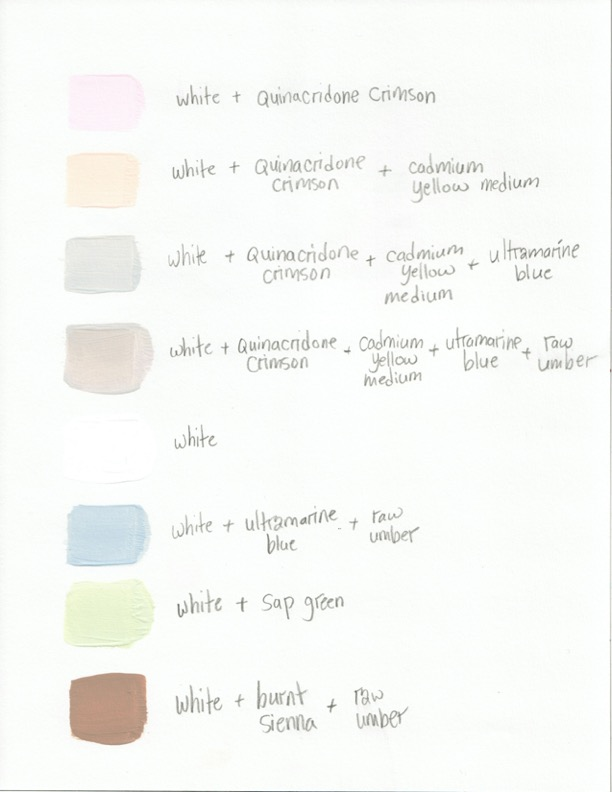 white + Quinacridone Crimson
white + Quinacridone crimson + cadmium yellow medium
white + Quinacridone crimson + cadmium yellow medium + ultramarine blue
white + Quinacridone Crimson + Cadmium yellow medium + utramarine blue + raw umber
white
white + ultramarine blue + raw umber
white + Sap green
white + burnt sienna + raw umber